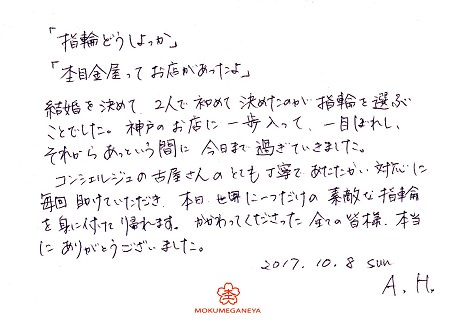 「指輪どうしよっか」
「杢目金屋って お店があったよ」
結婚を決めて、2人で初めて 決めたのが 指輪を選ぶ
ことでした。神戸のお店に 一歩入って、一目ぼれし、
それから あっという間に 今日まで 過ぎていきました。
コンシェルジュの古屋さんの とても丁寧であたたかい 対応に
毎回 助けていただき、本日、世界に一つだけの 素敵な 指輪
を身に付けて 帰れます。かかわってくださった 全ての皆様、本当
に ありがとうございました。
2017. 10. 8 sun
A. H.
杢
MOKUMEGANEYA